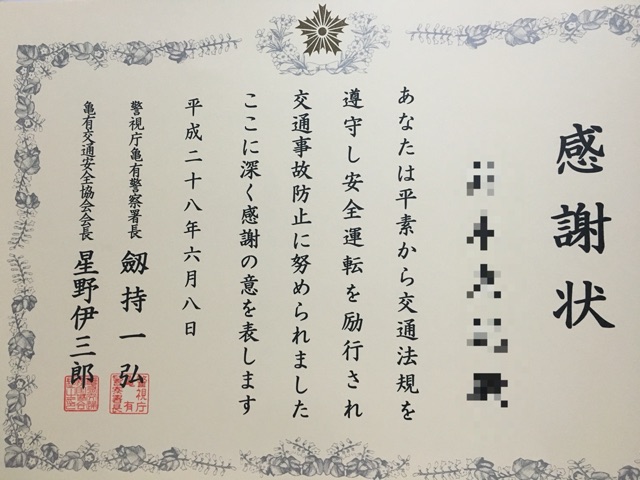 感謝状
あなたは平素から交通法規を
遵守し安全運転を励行され
交通事故防止に努められました
ここに深く感謝の意を表します
平成二十八年六月八日
警視庁亀有警察署長 剱持一弘
亀有交通安全協会会長 星野伊三郎